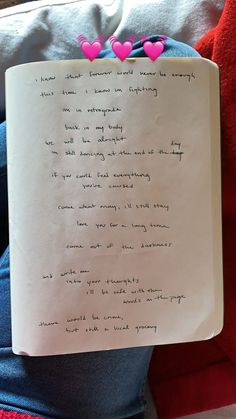 i know that forever would never be enough
this time i know im fighting
im in retrograde
back in my body
we will be alright
day
im still dancing at the end of the
if you could feel everything
you've caused
come what may, i'll still stay
love you for a long time
come out of the darkness
and write me
into your thoughts
i'll be safe with them
words on the page
there would be crime,
but still a local grocery